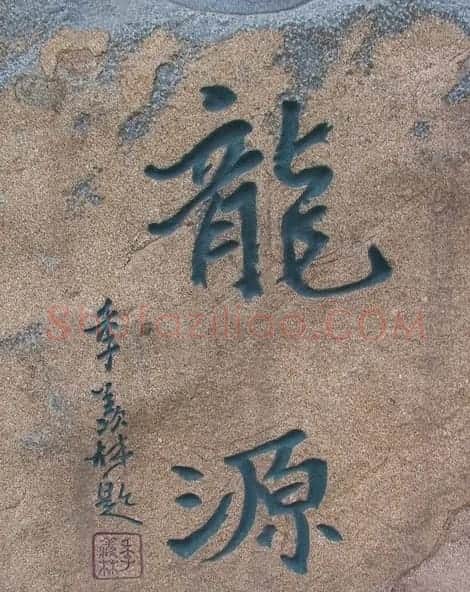 龍源
季羡林题
季羡林
Shufaziliao.COM